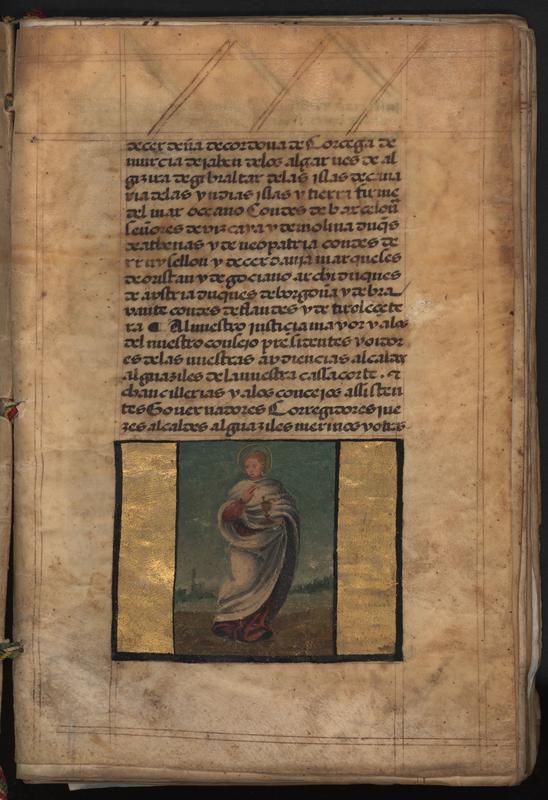 de cerdeña de cordova de Corcega de
murcia de iahen delos algarves de al
gizira de gibraltar delas islas de cana
ria delas yndias islas y tierra firme
del mar oceano Condes de barcelon
señores de vizcaya y de molina duq̃s
de athenas y de neopatria condes de
rruysellon y de cerdania marqueses
de oristan y de gociano archiduques
de avstria duques de borgoña y de bra
vante condes de flandes y de tirol ecete
ra ¶ Al nuestro iusticia mayor y alos
del nuestro consejo presidentes y oidor
es delas nuestras avdiencias alcaldes
alguaziles dela nuestra casa corte . &
chancillerias y alos concejos assisten
tes Governadores Corregidores jue
zes alcaldes alguaziles merinos y otros